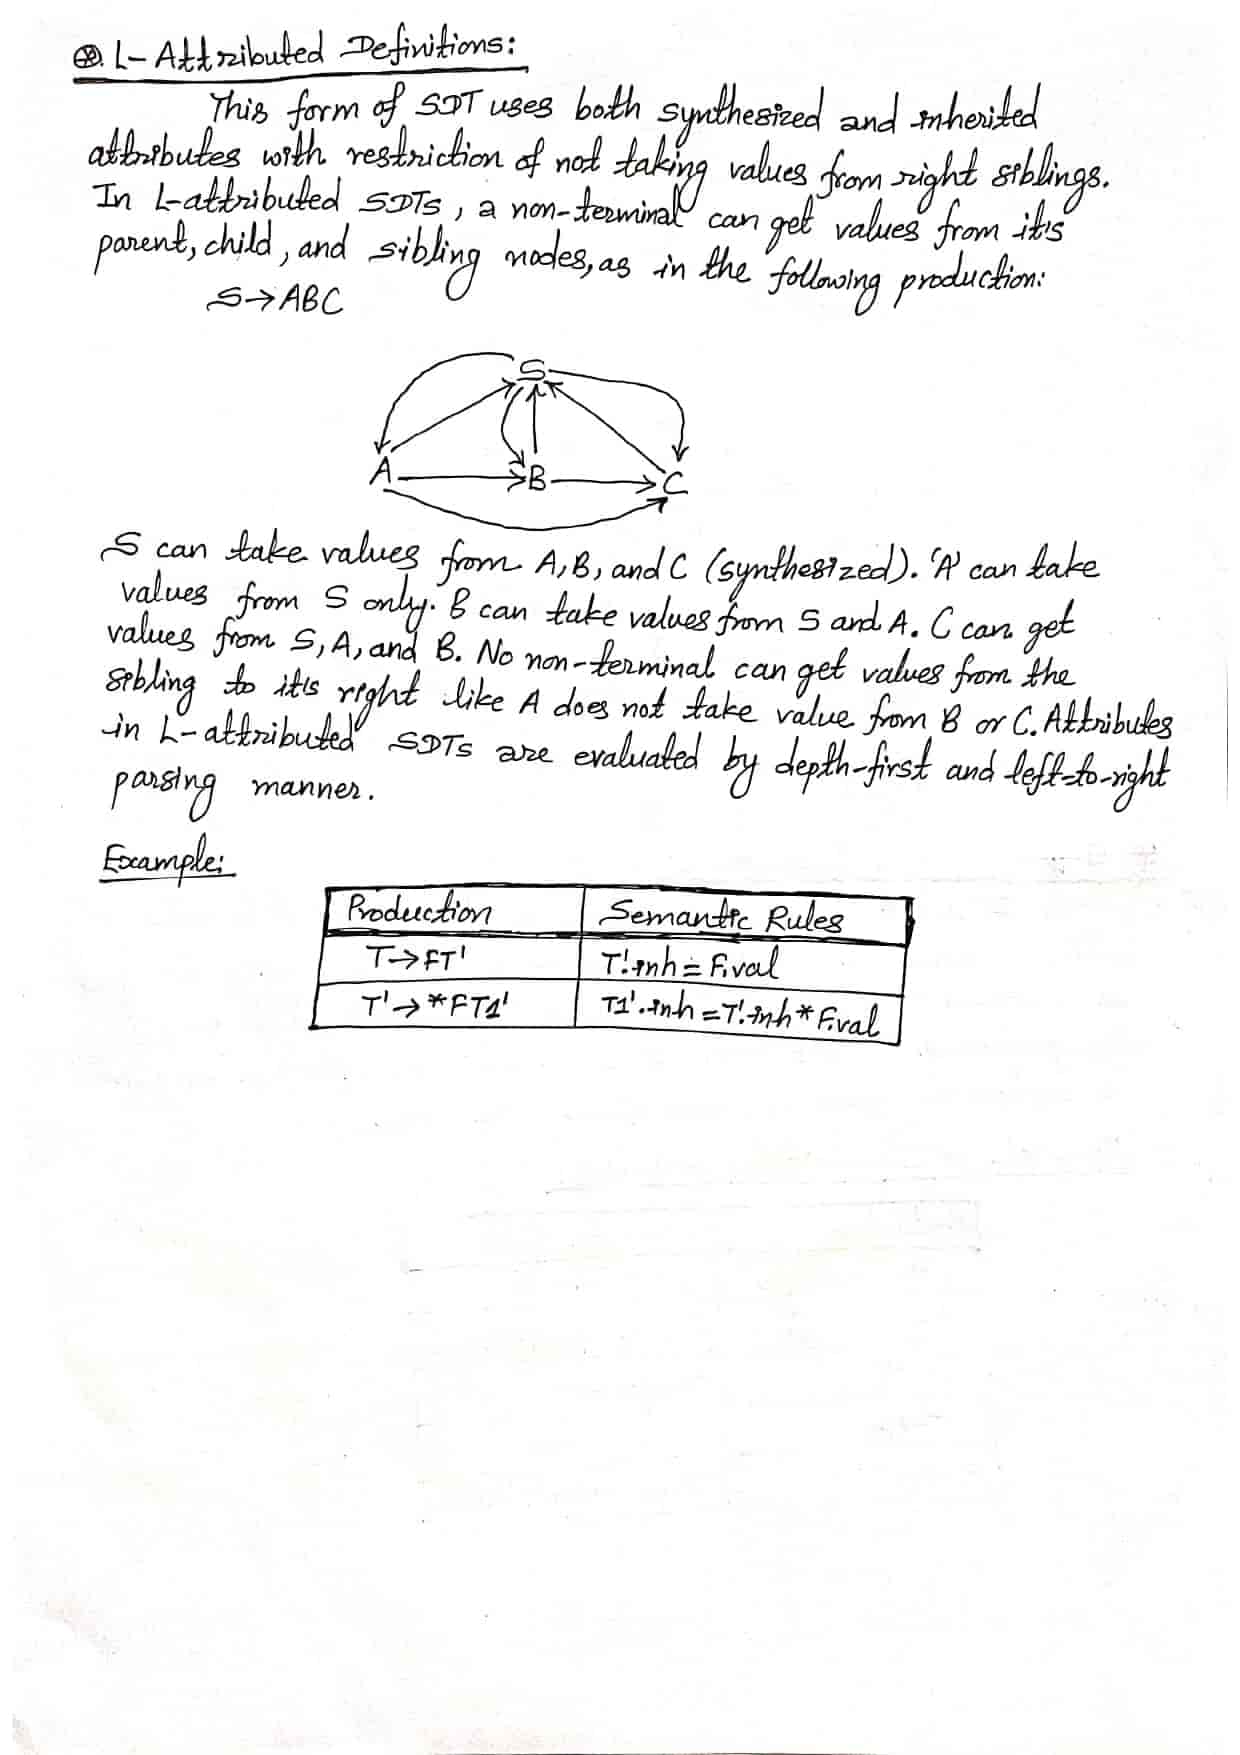 ⊛. L-Attributed Definitions:
This form of SDT uses both synthesized and inherited
attributes with restriction of not taking values from right siblings.
In L-attributed SDTs, a non-terminal can get values from it's
parent, child, and sibling nodes, as in the following production:
S→ABC
S
A B C
S can take values from A, B, and C (synthesized). 'A' can take
values from S only. B can take values from S and A. C can get
values from S, A, and B. No non-terminal can get values from the
sibling to it's right like A does not take value from B or C. Attributes
in L-attributed SDTs are evaluated by depth-first and left-to-right
parsing manner.
Example:
Production Semantic Rules
T→FT' T'.inh = F.val
T'→*FT1' T1'.inh = T'.inh * F.val